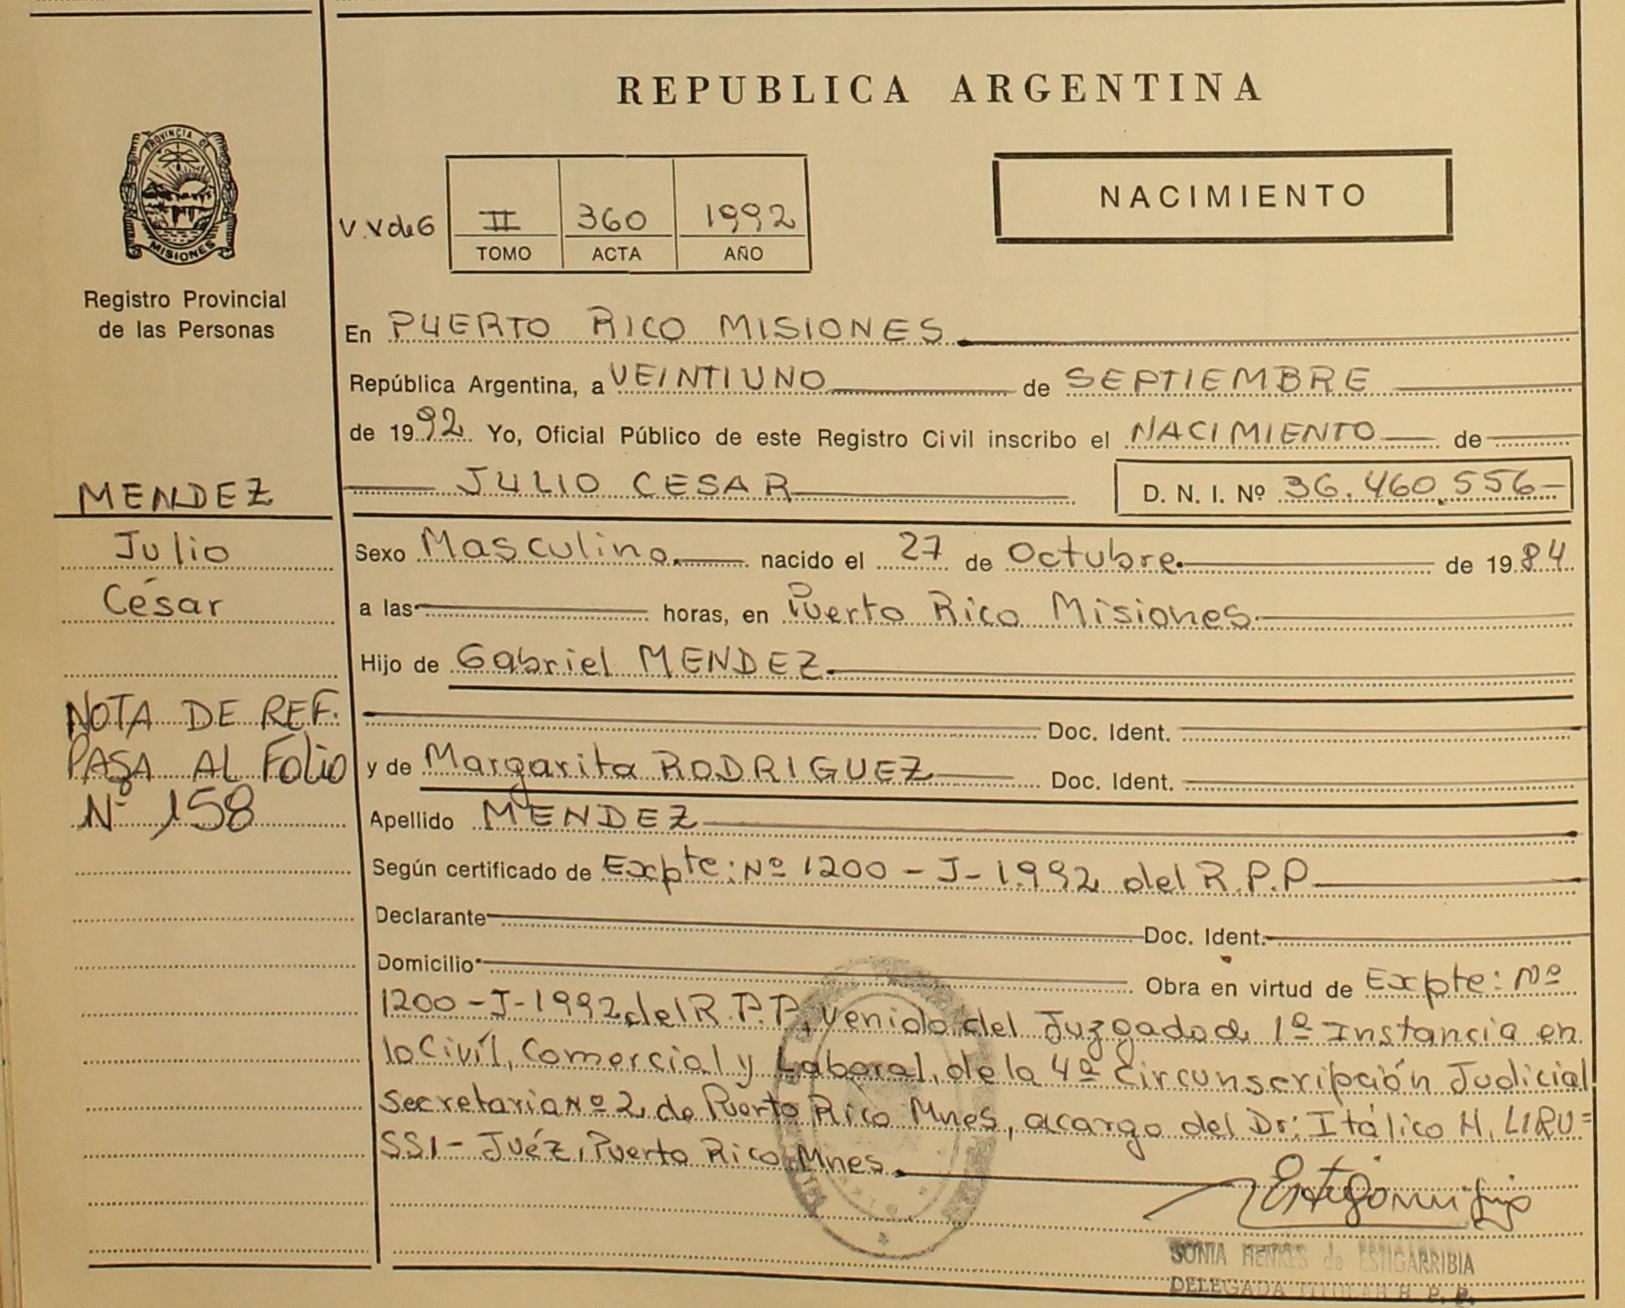 REPUBLICA ARGENTINA
PROVINCIA DE
MISIONES
Registro Provincial
de las Personas
V.V de G
II 360 1992
TOMO ACTA AÑO
NACIMIENTO
En PUERTO RICO MISIONES
República Argentina, a VEINTIUNO de SEPTIEMBRE
de 1992 Yo, Oficial Público de este Registro Civil inscribo el NACIMIENTO de
JULIO CESAR D. N. I. Nº 36.460.556
MENDEZ
Julio
César
NOTA DE REF.
PASA AL FOLIO
Nº 158
Sexo Masculino. nacido el 27 de Octubre de 1984
a las horas, en Puerto Rico Misiones
Hijo de Gabriel MENDEZ
Doc. Ident.
y de Margarita RODRIGUEZ Doc. Ident.
Apellido MENDEZ
Según certificado de Expte: Nº 1200-J-1992 del R.P.P
Declarante Doc. Ident.
Domicilio Obra en virtud de Expte: Nº
1200-J-1992 del R.P.P, venido del Juzgado de 1ª Instancia en
lo Civíl, Comercial y Laboral, de la 4ª Circunscripción Judicial
Secretaria Nº 2, de Puerto Rico Mnes, a cargo del Dr: Itálico H. LIRU=
SSI - Juéz, Puerto Rico Mnes.
SONIA de ESTIGARRIBIA
DELEGADA TITULAR R. P. P.